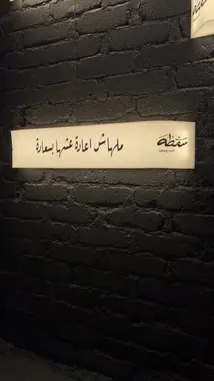 ملهاش اعازة عنها بسعازة
سَقْطَة